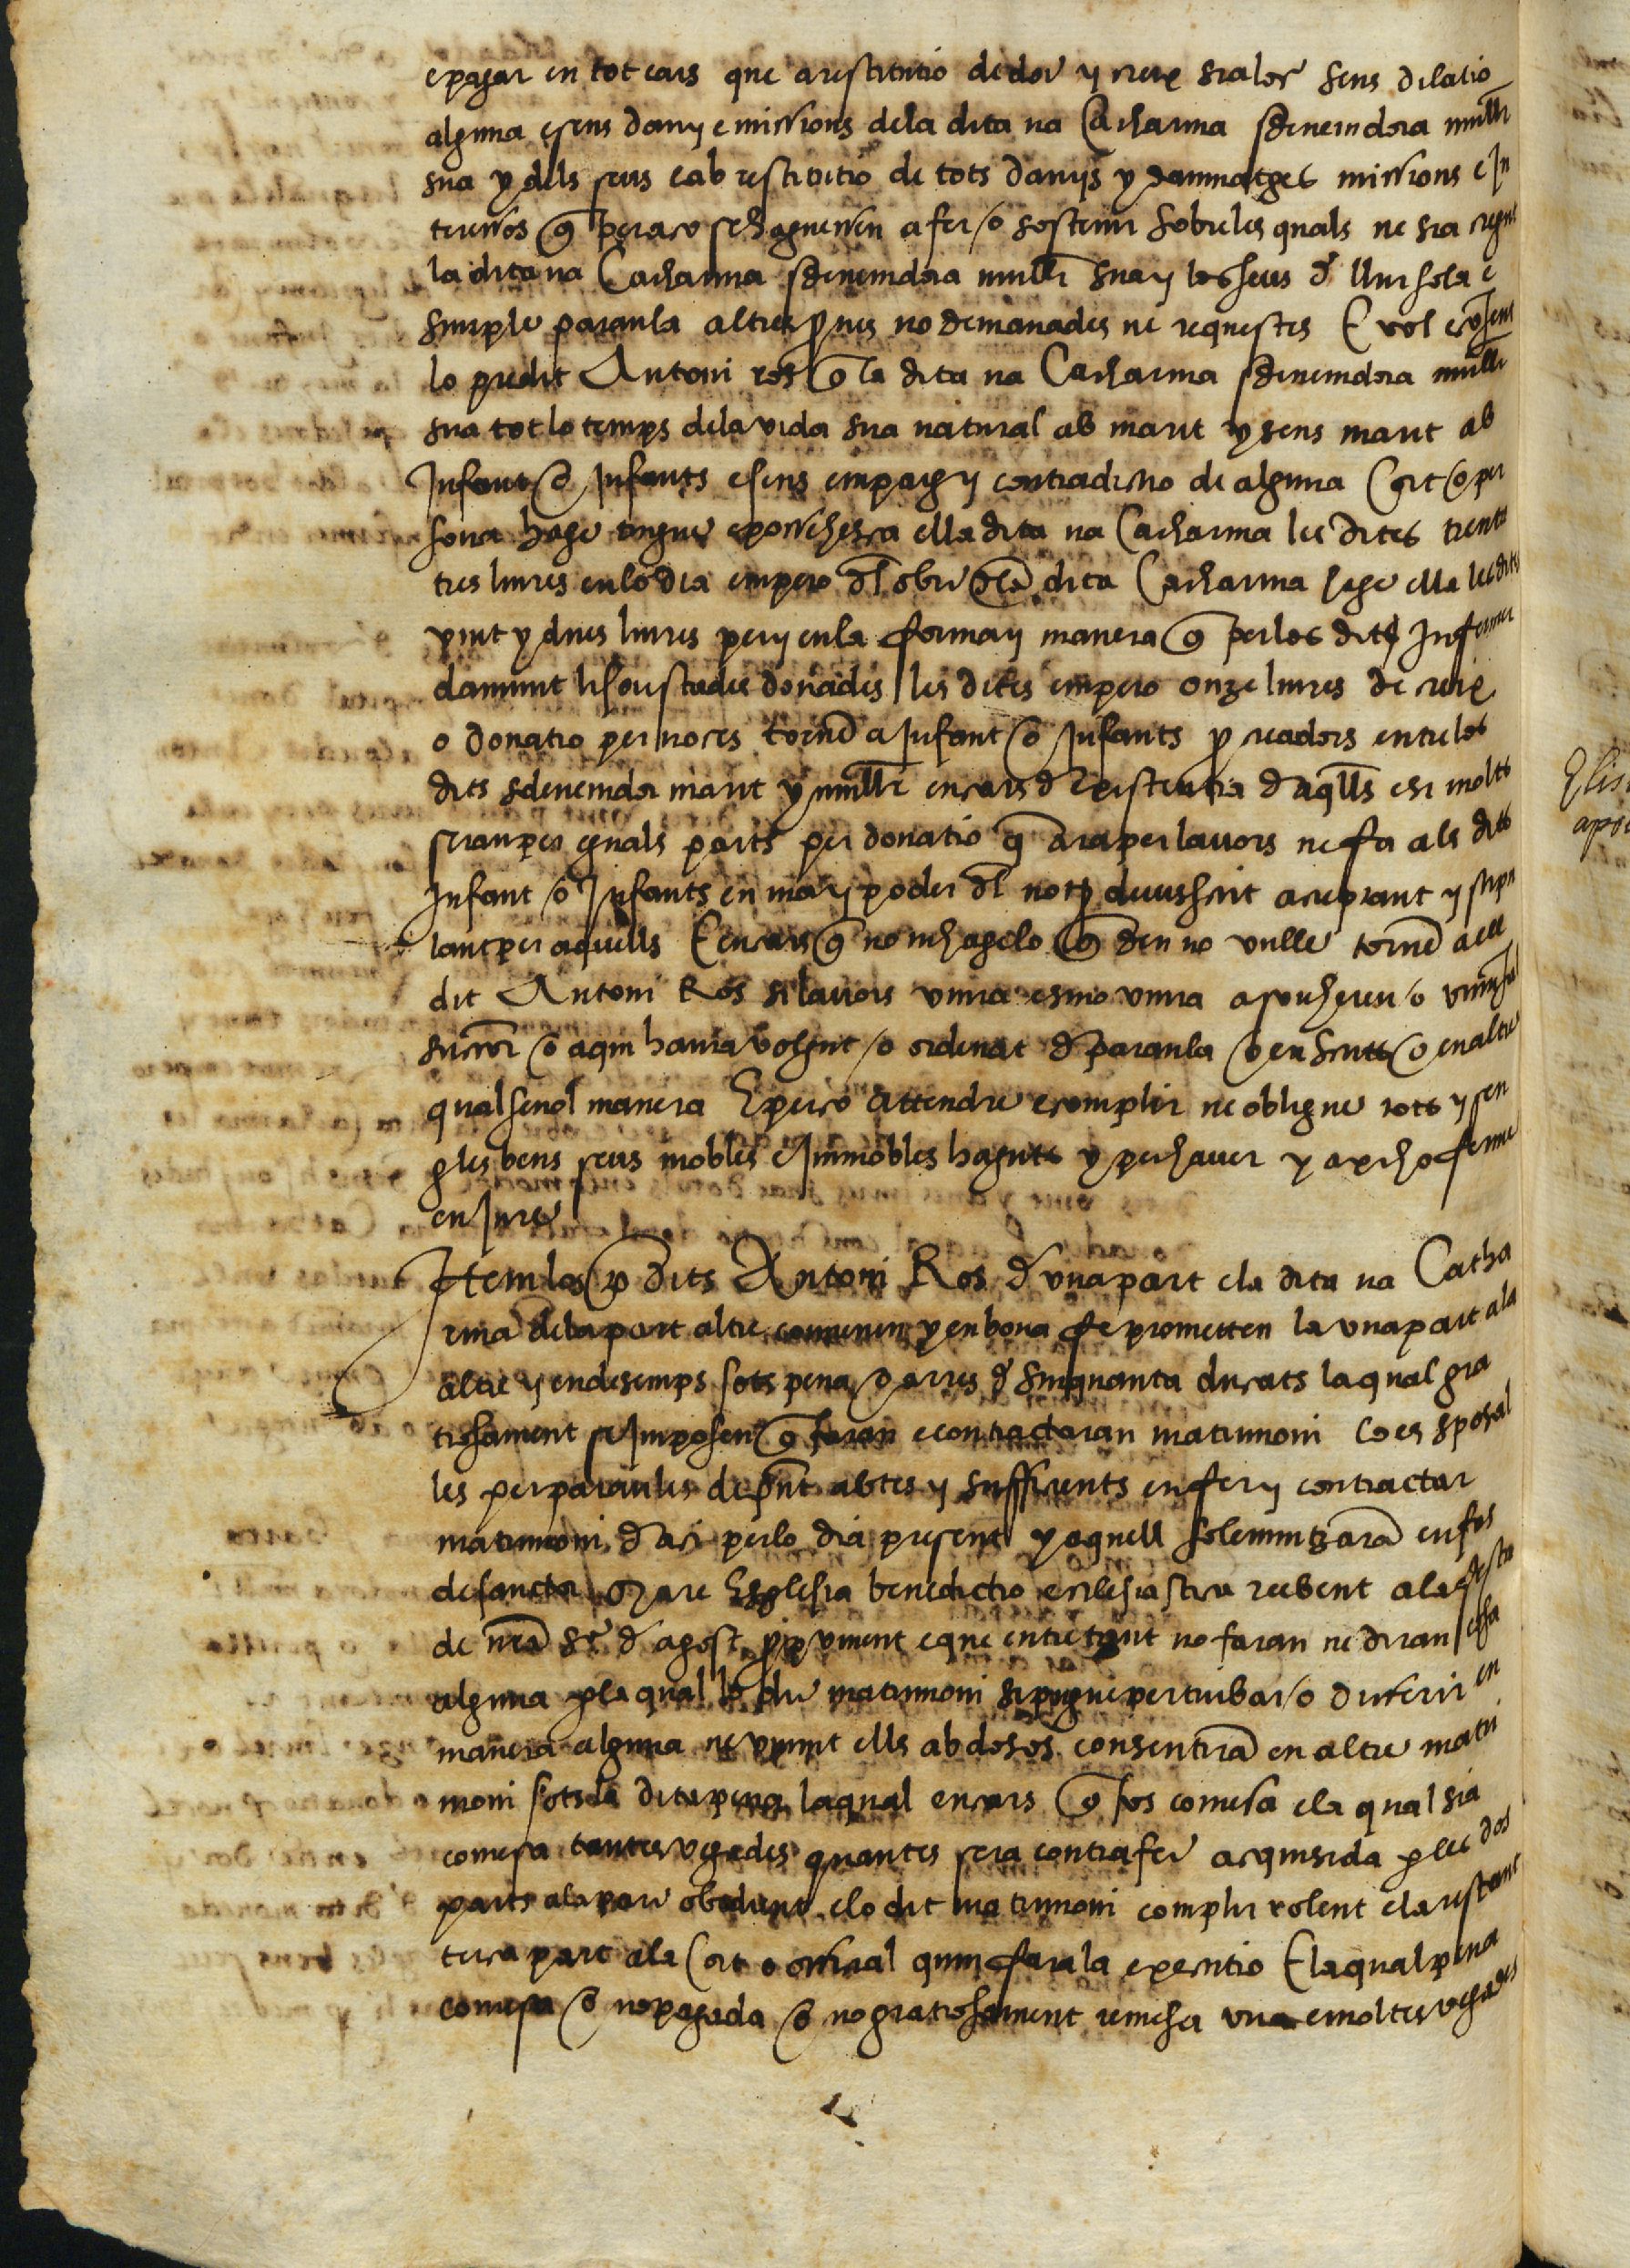 e pagar en tot cars que a restitutio de dot y creix sia loc sens dilatio
alguna e sens dany e missions de la dita na Catharina sdevenidora mullr
sua y dels seus e ab restitutio de tots danys y damnatges missions e In
teressos q per aço se haguessen a fer /o sostenir sobre les quals ne sia cregut
la dita na Catharina sdevenidora mullr sua y los seus d llur sola e
simple paraula altres pves no demanades ne requestes E vol e cosent
lo predit Antoni ros q la dita na Catharina sdevenidora mullr
sua tot lo temps de la vida sua natural ab marit y sens marit ab
Infant o Infants e sens empaig y contradictio de alguna Cort o per
sona hage tingue e possehesca ella dita na Catharina les dites trenta
tres liures en lo dia empero dl obit dla dita Catharina hage ella les dits
vint y dues liures per y en la forma y manera q per los dits
damunt li son stades donades les dites empero onze liures de creix
o donatio per noces torne a Infant o Infants pcreadors entre los
dits sdevenidor marit y mullr en cars d existentia d aqlls e si molts
seran per eguals parts per donatio q ara per lavors ne fa als dits
Infant o Infants en ma y poder dl not devall scrit acceptant y stipu
lant per aquells E en cars q no nhage lo q deu no vulle torne a ell
dit Antoni Ros si lavors viura e si no viura a son hereu /o universal
succor o a qui haura volgut /o ordenat d paraula o en scrits o en altre
qualsevol manera E per ço attendre e complir ne obligue tots y sen
gles bens seus mobles e Immobles haguts y per haver y axi ho ferme
en Jure
Item los p dits Antoni Ros d una part e la dita na Catha
rina de la part altre convenen y en bona fe prometten la una part a la
altre y endesemps sots pena o arres d sinquanta ducats la qual gra
tiosament se Imposen q faran e contractaran matrimoni ço es sposal
les per paraules de pnt abtes y sufficients en fer y contractar
matrimoni d aci per lo dia present y aquell solemnizara en fas
de sancta mare Esglesia benedictio ecclesiastica reebent a la festa
de nra Sra d agost pp vinent e que entretant no faran ne diran cosa
alguna p la qual lo dit matrimoni se pugue perturbar /o diferir en
manera alguna ne vivint ells abdosos consentira en altre matri
moni sots la dita pena la qual en cars q fos comesa e la qual sia
comesa tantes vegades quantes sera contrafet acquisida p les dos
parts a la part obedient e lo dit matrimoni complir volent e la restant
terça part a la Cort o official quin fara la executio E la qual pena
comesa o no pagada o no gratiosament remesa una e moltes vegades